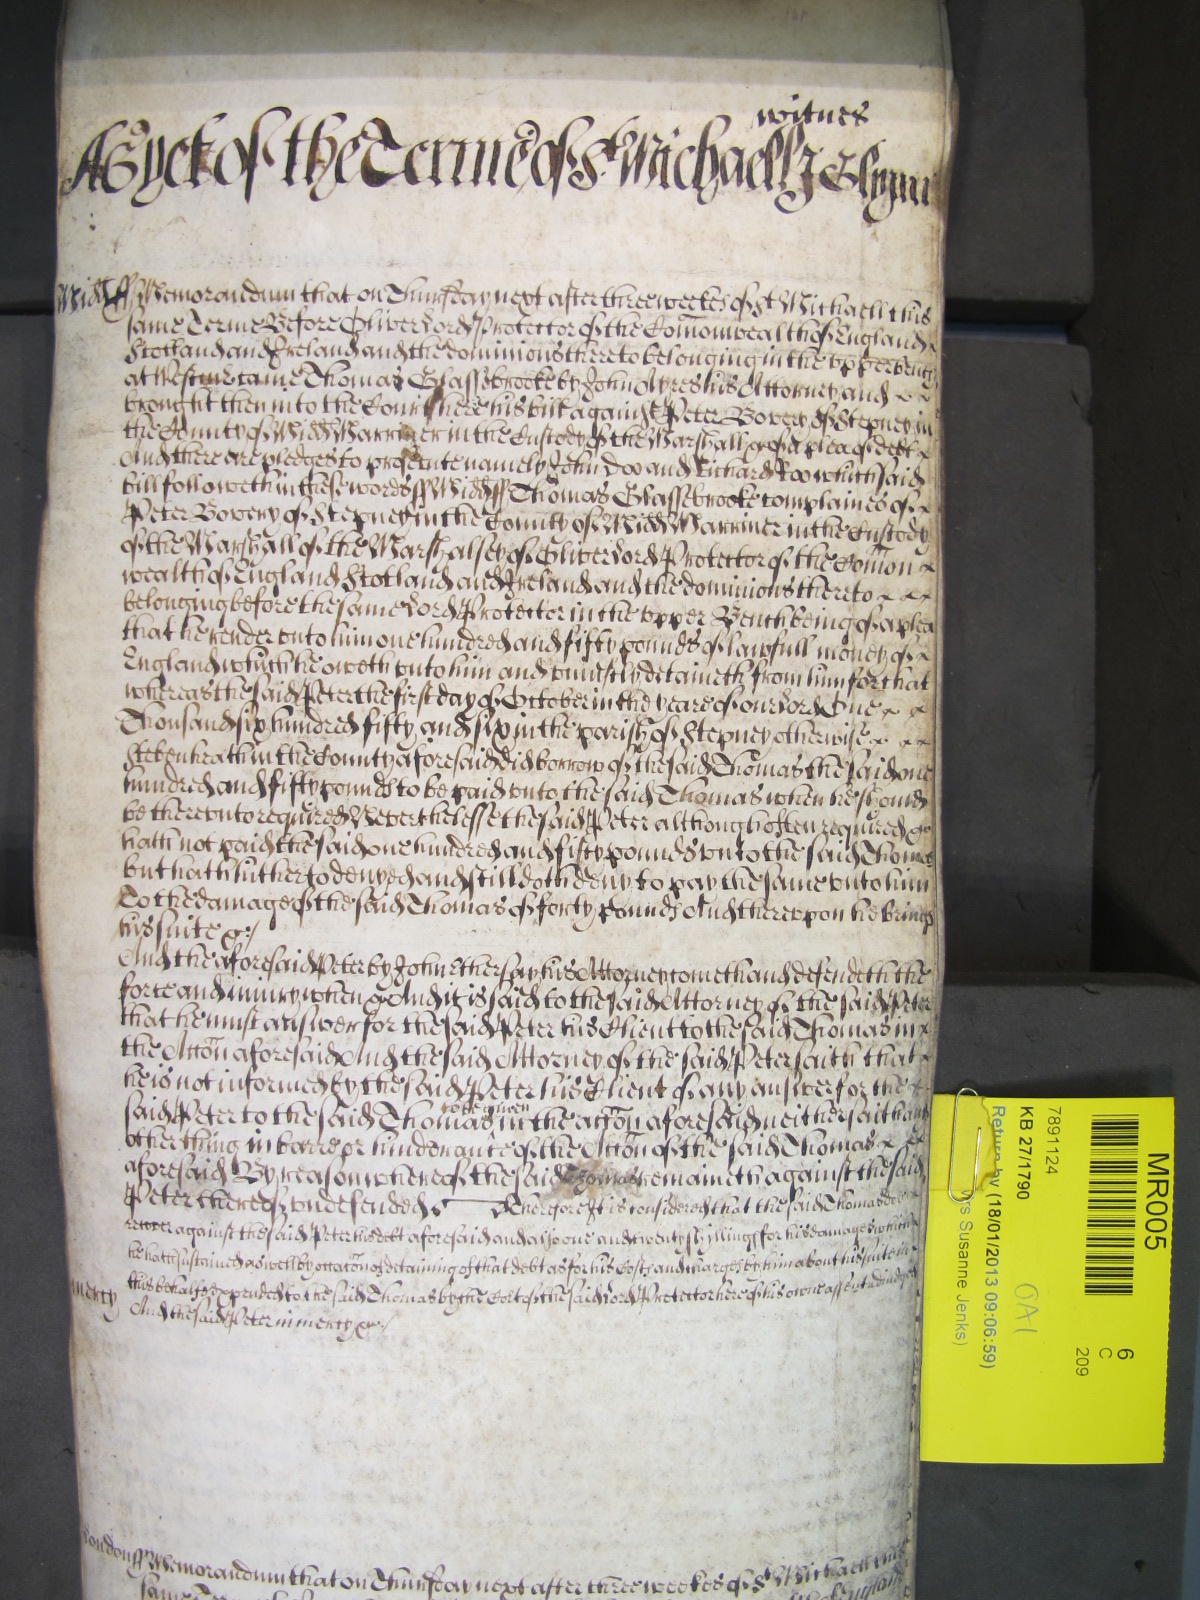 witnes
As yet of the Terme of St Michaell J Glynn
Midd ss Memorandum that on Thursday next after three weekes of St Michaell this
same Terme Before Oliver Lord Protector of the Comonwealth of England
Scotland and Ireland and the dominions thereto belonging in the upper bench
at Westmr came Thomas Glassebrooke by John Ayres his Attorney and
brought then into the Court here his bill against Peter Bovery of Stepney in
the County of Midd Marriner in the Custody of the Marshall &c of a plea of debt
And there are pledges to prosecute namely John Doo and Richard Roo which said
bill followeth in these words ss Midd ss Thomas Glassebrooke complaines of
Peter Bovery of Stepney in the County of Midd Marriner in the Custody
of the Marshall of the Marshalsey of Oliver Lord Protector of the Comon
wealth of England Scotland and Ireland and the dominions thereto
belonging before the same Lord Protector in the upper Bench being of a plea
that he render unto him one hundred and fifty pounds of lawfull money of
England which he oweth unto him and unjustly detaineth from him for that
whereas the said Peter the first day of October in the yeare of our Lord One
Thousand six hundred fifty and six in the parish of Stepney otherwise
Stebenheath in the County aforesaid did borrow of the said Thomas the said one
hundred and fifty pounds to be paid unto the said Thomas when he should
be thereunto required Neverthelesse the said Peter although often required &c
hath not paid the said one hundred and fifty pounds unto the said Thomas
but hath hitherto denyed and still doth deny to pay the same unto him
To the damage of the said Thomas of forty pounds And thereupon he brings
his suite &c /
And the aforesaid Peter by John his Attorney cometh and defendeth the
force and injury when &c And it is said to the said Attorney of the said Peter
that he must answer for the said Peter his Client to the said Thomas in
the Action aforesaid And the said Attorney of the said Peter saith that
he is not informed by the said Peter his Client of any answer for the
to be given
said Peter to the said Thomas in the action aforesaid neither saith any
other thing in barre or hinderance of the Action of the said Thomas
aforesaid By reason whereof the said Thomas remaineth against the said
Peter thereof undefended Therefore It is considered that the said Thomas doe
recover against the said Peter his debt aforesaid and also one and twenty shillings for his damages which
he hath sustained as well by occation of detaining of that debt as for his Costs and charges by him about his suite in
mercy this behalfe expended to the said Thomas by the Court of the said Lord Protector here of his owne assent adiudged
And the said Peter in mercy &c /
London ss Memorandum that on Thursday next after three weekes of St Michaell this
same
of England
MR005
6
C
209
7891124
KB 27/1790
Return by (18/01/2013 09:06:59)
rs Susanne Jenks)